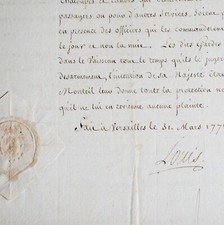 Chaloupes à rames, ou
passagers ou pour d'autres services, soient
en présence des officiers qui les commanderont
le jour et non la nuit. Les dits Gardes
dans le Vaisseau tout le temps qu'ils le jugeront
désarmement, l'intention de Sa Majesté étant
Monteil leur donne toute la protection
qu'il ne lui en revienne aucune plainte.
Fait à Versailles le 31. Mars 177
Louis